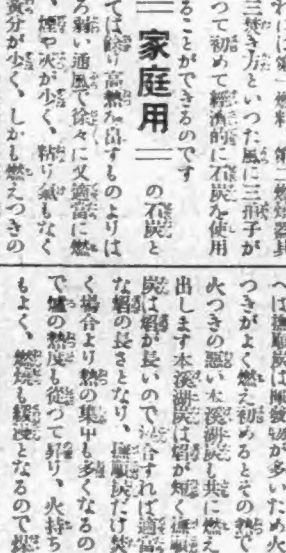 れには第一燃料、第二燃焼器具
三焚き方といつた風に三拍子が
つて初めて經濟的に石炭を使用
ることができるのです
家庭用
の石炭と
ては餘り高熱を出すものよりは
ろ弱い通風で徐々に又適當に燃
、煙や火が少く、粘り氣もなく
黄分が少く、しかも燃えつきの
へば撫順炭は揮發物が多いため火
つきがよく燃え初めるとその熱で
火つきの惡い本溪湖炭も共に燃え
出します本溪湖炭は焰が短く撫順
炭は焰が長いので混合すれば適當
な焰の長さとなり、撫順炭だけ焚
く場合より熱の集中も多くなるの
で爐の熱度も從つて昇り、火持ち
もよく、燃燒も緩漫となるので